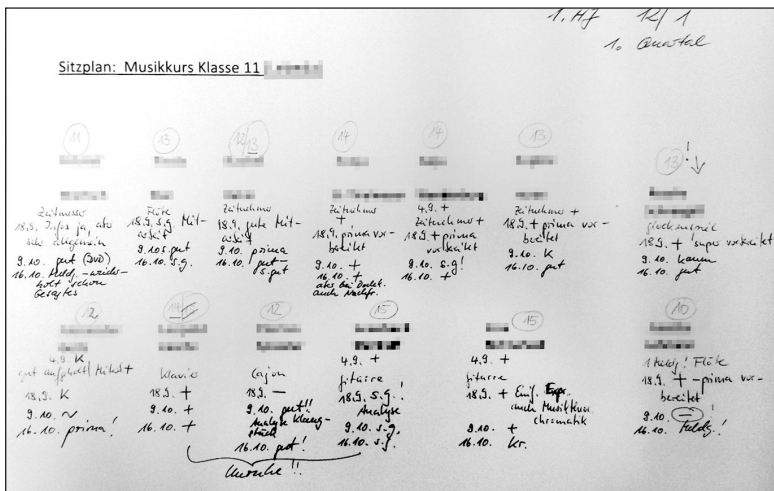 1. HJ 12/1
1. Quartal
Sitzplan: Musikkurs Klasse 11
11
13
12/13
14
14
13
13 !
Zeitnehmer
18.9. Infos ja, aber
sehr allgemein
9.10. gut (DVD)
16.10. Meldg. – wieder-
holt schon
Gesagtes
Flöte
18.9. s.g. Mit-
arbeit
9.10. s.gut
16.10. s.g.
Zeitnehmer
18.9. gute Mit-
arbeit
9.10. prima
16.10. gut –
s.gut
+
Zeitnehmer
18.9. prima vor-
bereitet
9.10. +
16.10. +
auch Nachfr.
4.9. +
Zeitnehmer +
18.9. + prima
vorbereitet
9.10. s.g!
16.10. +
Zeitnehmer +
18.9. + prima vor-
bereitet
9.10. K
16.10. gut
Glockenspiel
18.9. + super vorbereitet
9.10. kaum
16.10. gut
12
14
12
15
15
10
4.9. K
gut aufgeholt/Mitarbeit
18.9. K
9.10. ~
16.10. prima!
Klavier
18.9. +
9.10. +
16.10. +
Cajon
18.9. —
9.10. gut!!
Analyse Klang-
stück
16.10. gut!
4.9. +
Gitarre
18.9. s.g.!
Analyse
9.10. s.g.
16.10. s.g.
4.9. +
Gitarre
18.9. + Einf.
auch Musikkurs
chromatik
9.10. +
16.10. Kr.
1 Meldg! Flöte
18.9. + – prima vor-
bereitet
9.10. –
16.10. Meldg!
Unruhe!!